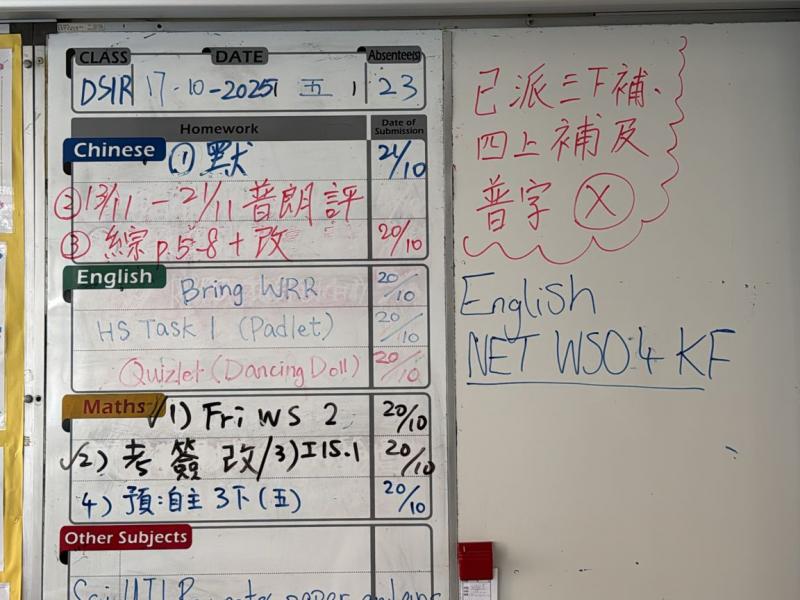 CLASS DATE Absentee(s)
17-10-2025 五 23
Homework Date of Submission
Chinese ① 默 21/10
② 13/11 - 21/11 普朗評
③ 綜 p.5-8 + 改 20/10
English Bring WRR 20/10
HS Task 1 (Padlet) 20/10
Quizlet (Dancing Doll) 20/10
Maths ✓1) Fri WS 2 20/10
✓2) 考 簽 改/3) I15.1 20/10
4) 預:自主 3下(五) 20/10
Other Subjects
已派三下補、
四上補及
普字 Ⓧ
English
NET WS0.4 KF